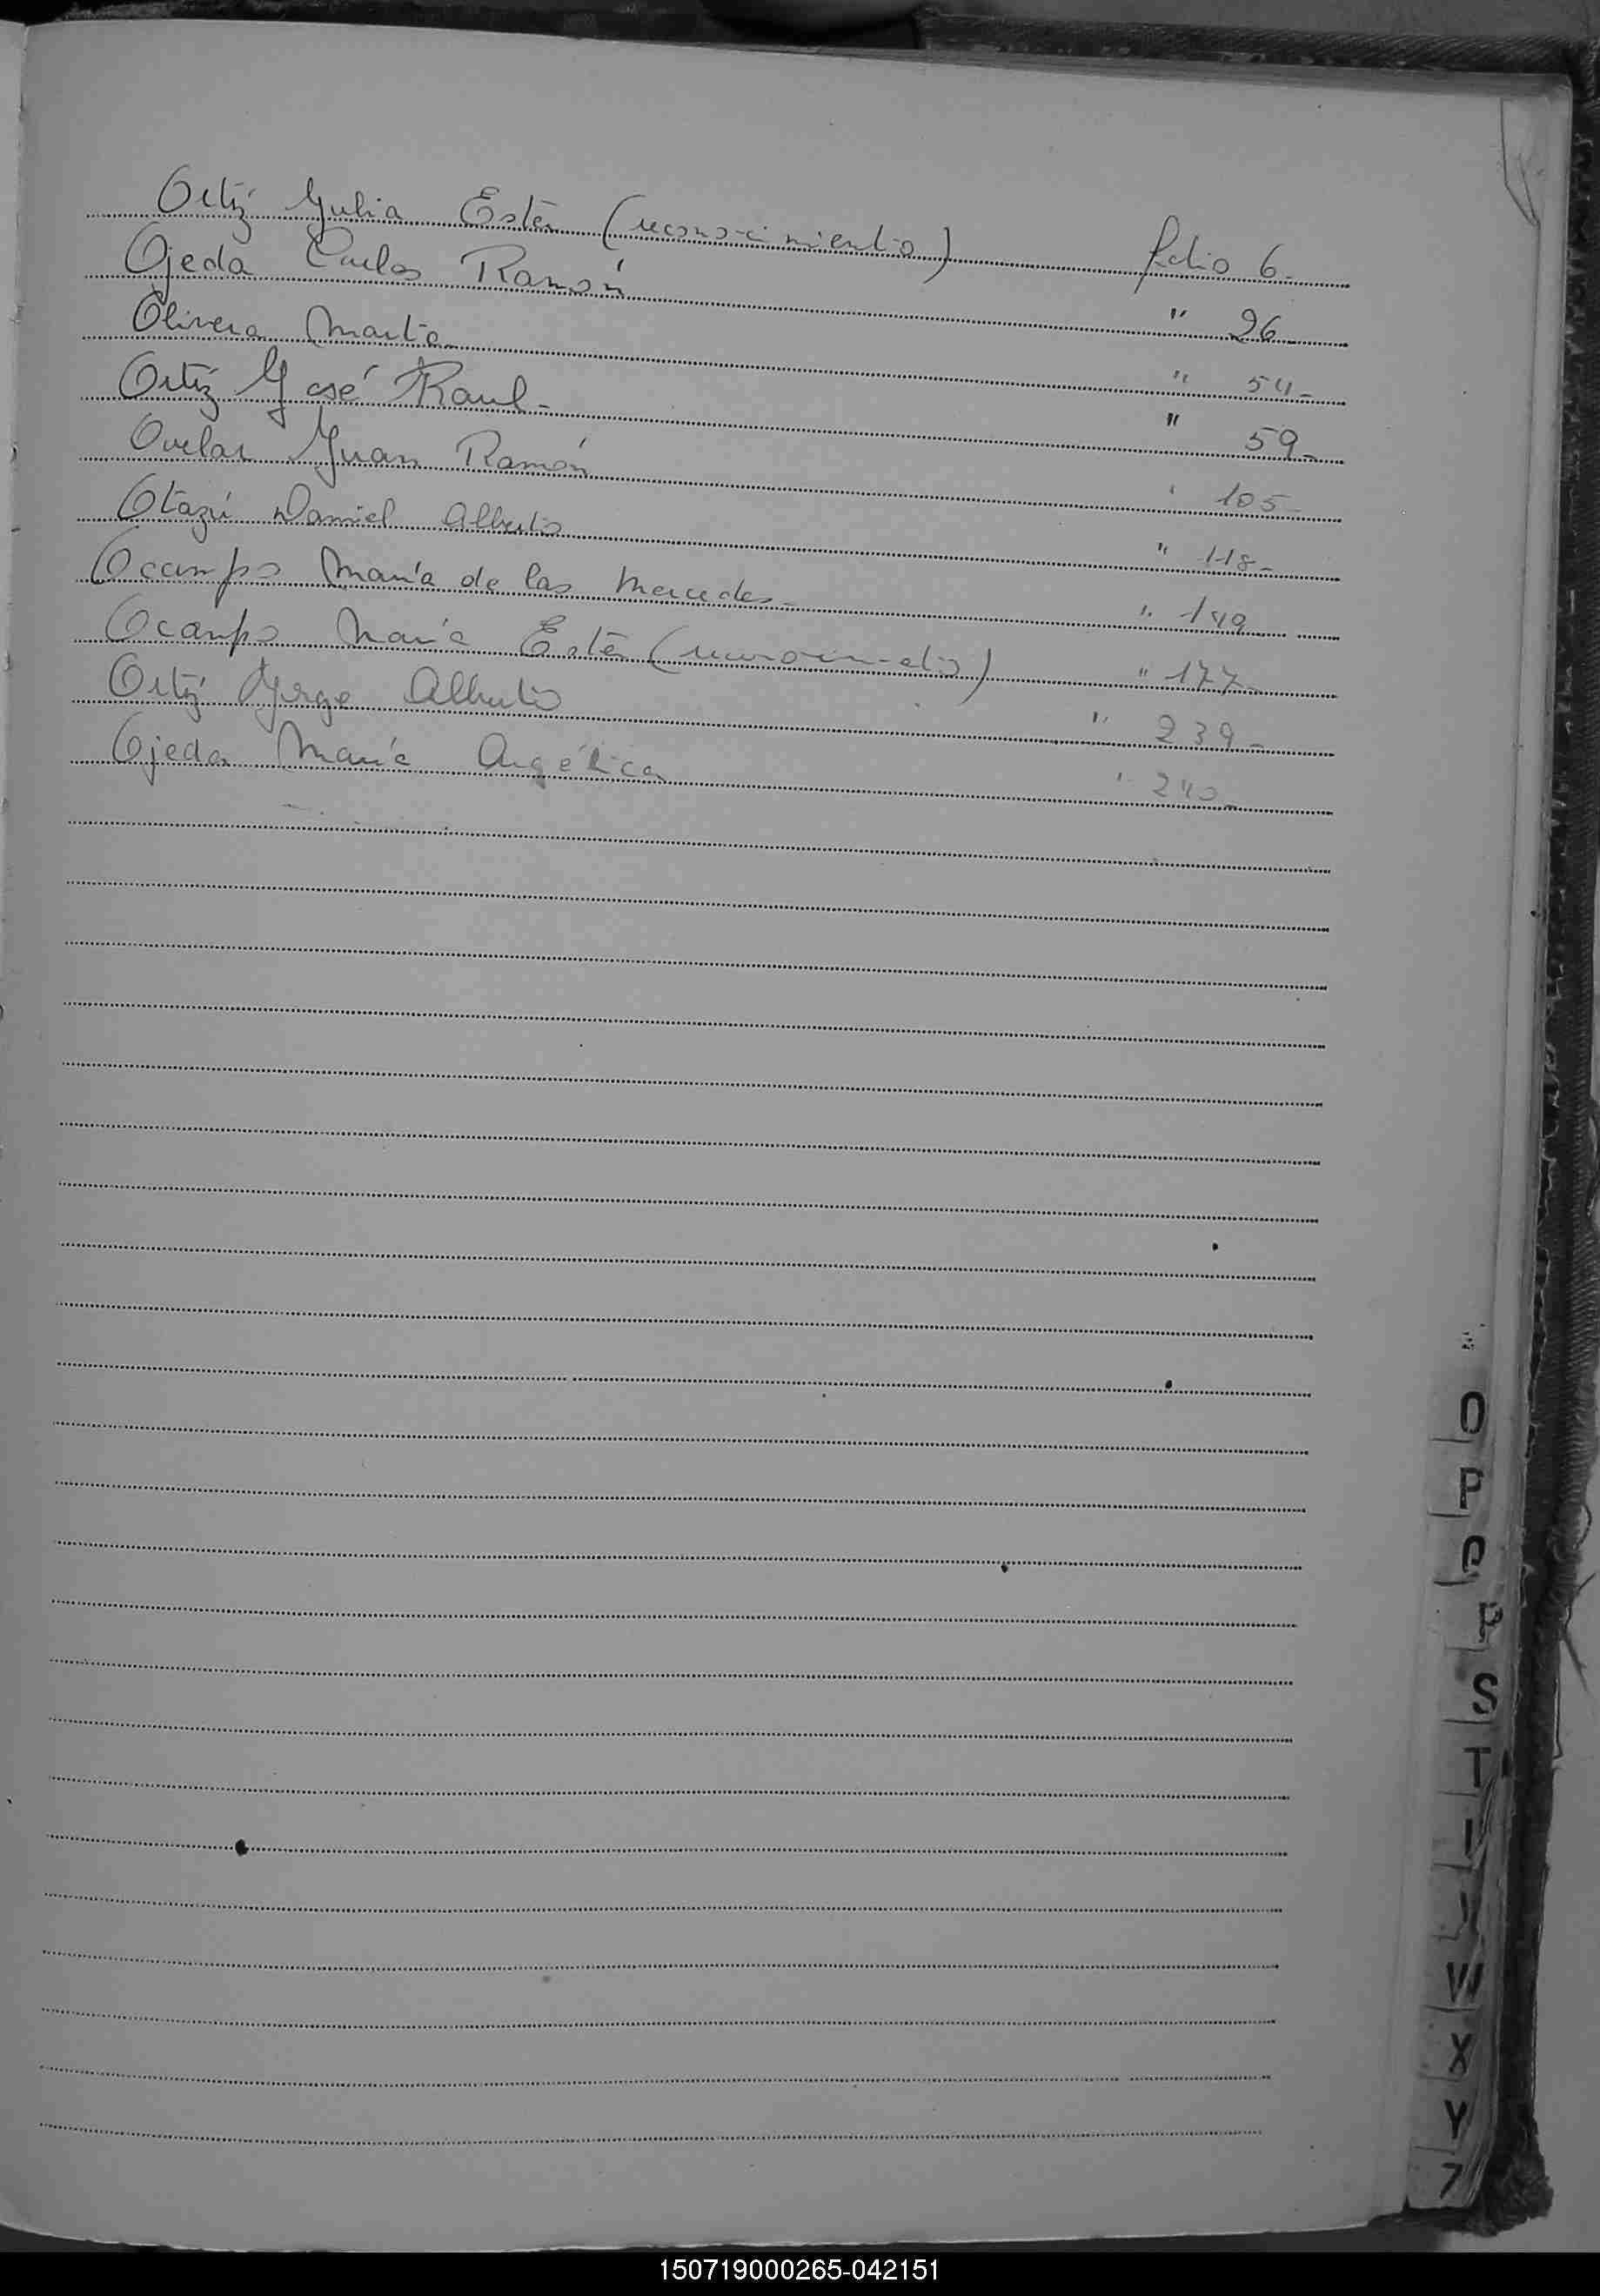 Ortíz Julia Ester (reconocimiento) folio 6-
Ojeda Carlos Ramón " 26
Olivera Marta " 54-
Ortíz José Raul - " 59-
Ovelar Juan Ramón " 105-
Otazú Daniel Alberto " 118-
Ocampo María de las Mercedes- " 149
Ocampo María Ester ( ) " 177-
Ortíz Jorge Alberto " 239-
Ojeda María Angélica " 240-
O
P
Q
R
S
T
W
X
Y
150719000265-042151